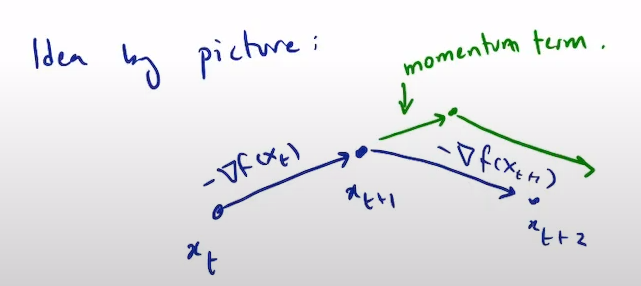 Idea by picture:
momentum term.
-∇f(x_t)
-∇f(x_{t+1})
x_{t+1}
x_t
x_{t+2}